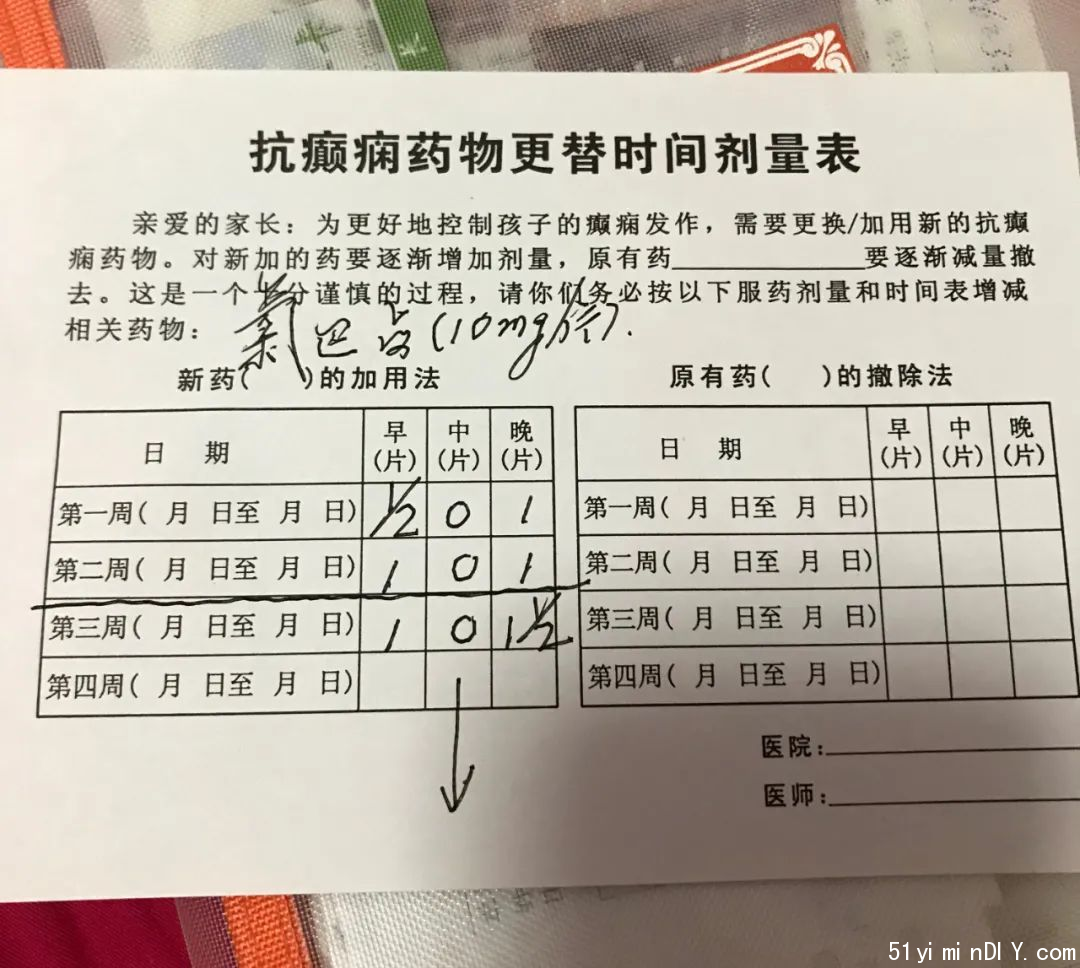 抗癫痫药物更替时间剂量表
亲爱的家长：为更好地控制孩子的癫痫发作，需要更换/加用新的抗癫
痫药物。对新加的药要逐渐增加剂量，原有药__________要逐渐减量撤
去。这是一个十分谨慎的过程，请你们务必按以下服药剂量和时间表增减
相关药物：
氯巴占(10mg/片).
新药( )的加用法
日 期 早(片) 中(片) 晚(片)
第一周( 月 日至 月 日) 1/2 0 1
第二周( 月 日至 月 日) 1 0 1
第三周( 月 日至 月 日) 1 0 1 1/2
第四周( 月 日至 月 日)
原有药( )的撤除法
日 期 早(片) 中(片) 晚(片)
第一周( 月 日至 月 日)
第二周( 月 日至 月 日)
第三周( 月 日至 月 日)
第四周( 月 日至 月 日)
医院:
医师:
51yiminDIY.com